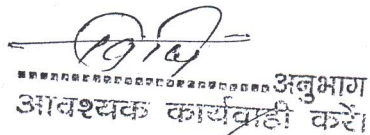 विधि
अनुभाग
आवश्यक कार्यवाही करें।